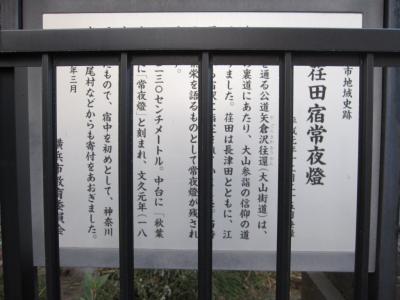 市地域史跡
荏田宿常夜燈
を通る公道矢倉沢往還(大山街道)は、
の裏道にあたり、大山参詣の信仰の道
りました。荏田は長津田とともに、江
栄を語るものとして常夜燈が残され
す。
二三〇センチメートル。中台に「秋葉
に「常夜燈」と刻まれ、文久元年(一八
たもので、宿中を初めとして、神奈川
尾村などからも寄付をあおぎました。
年三月
横浜市教育委員会